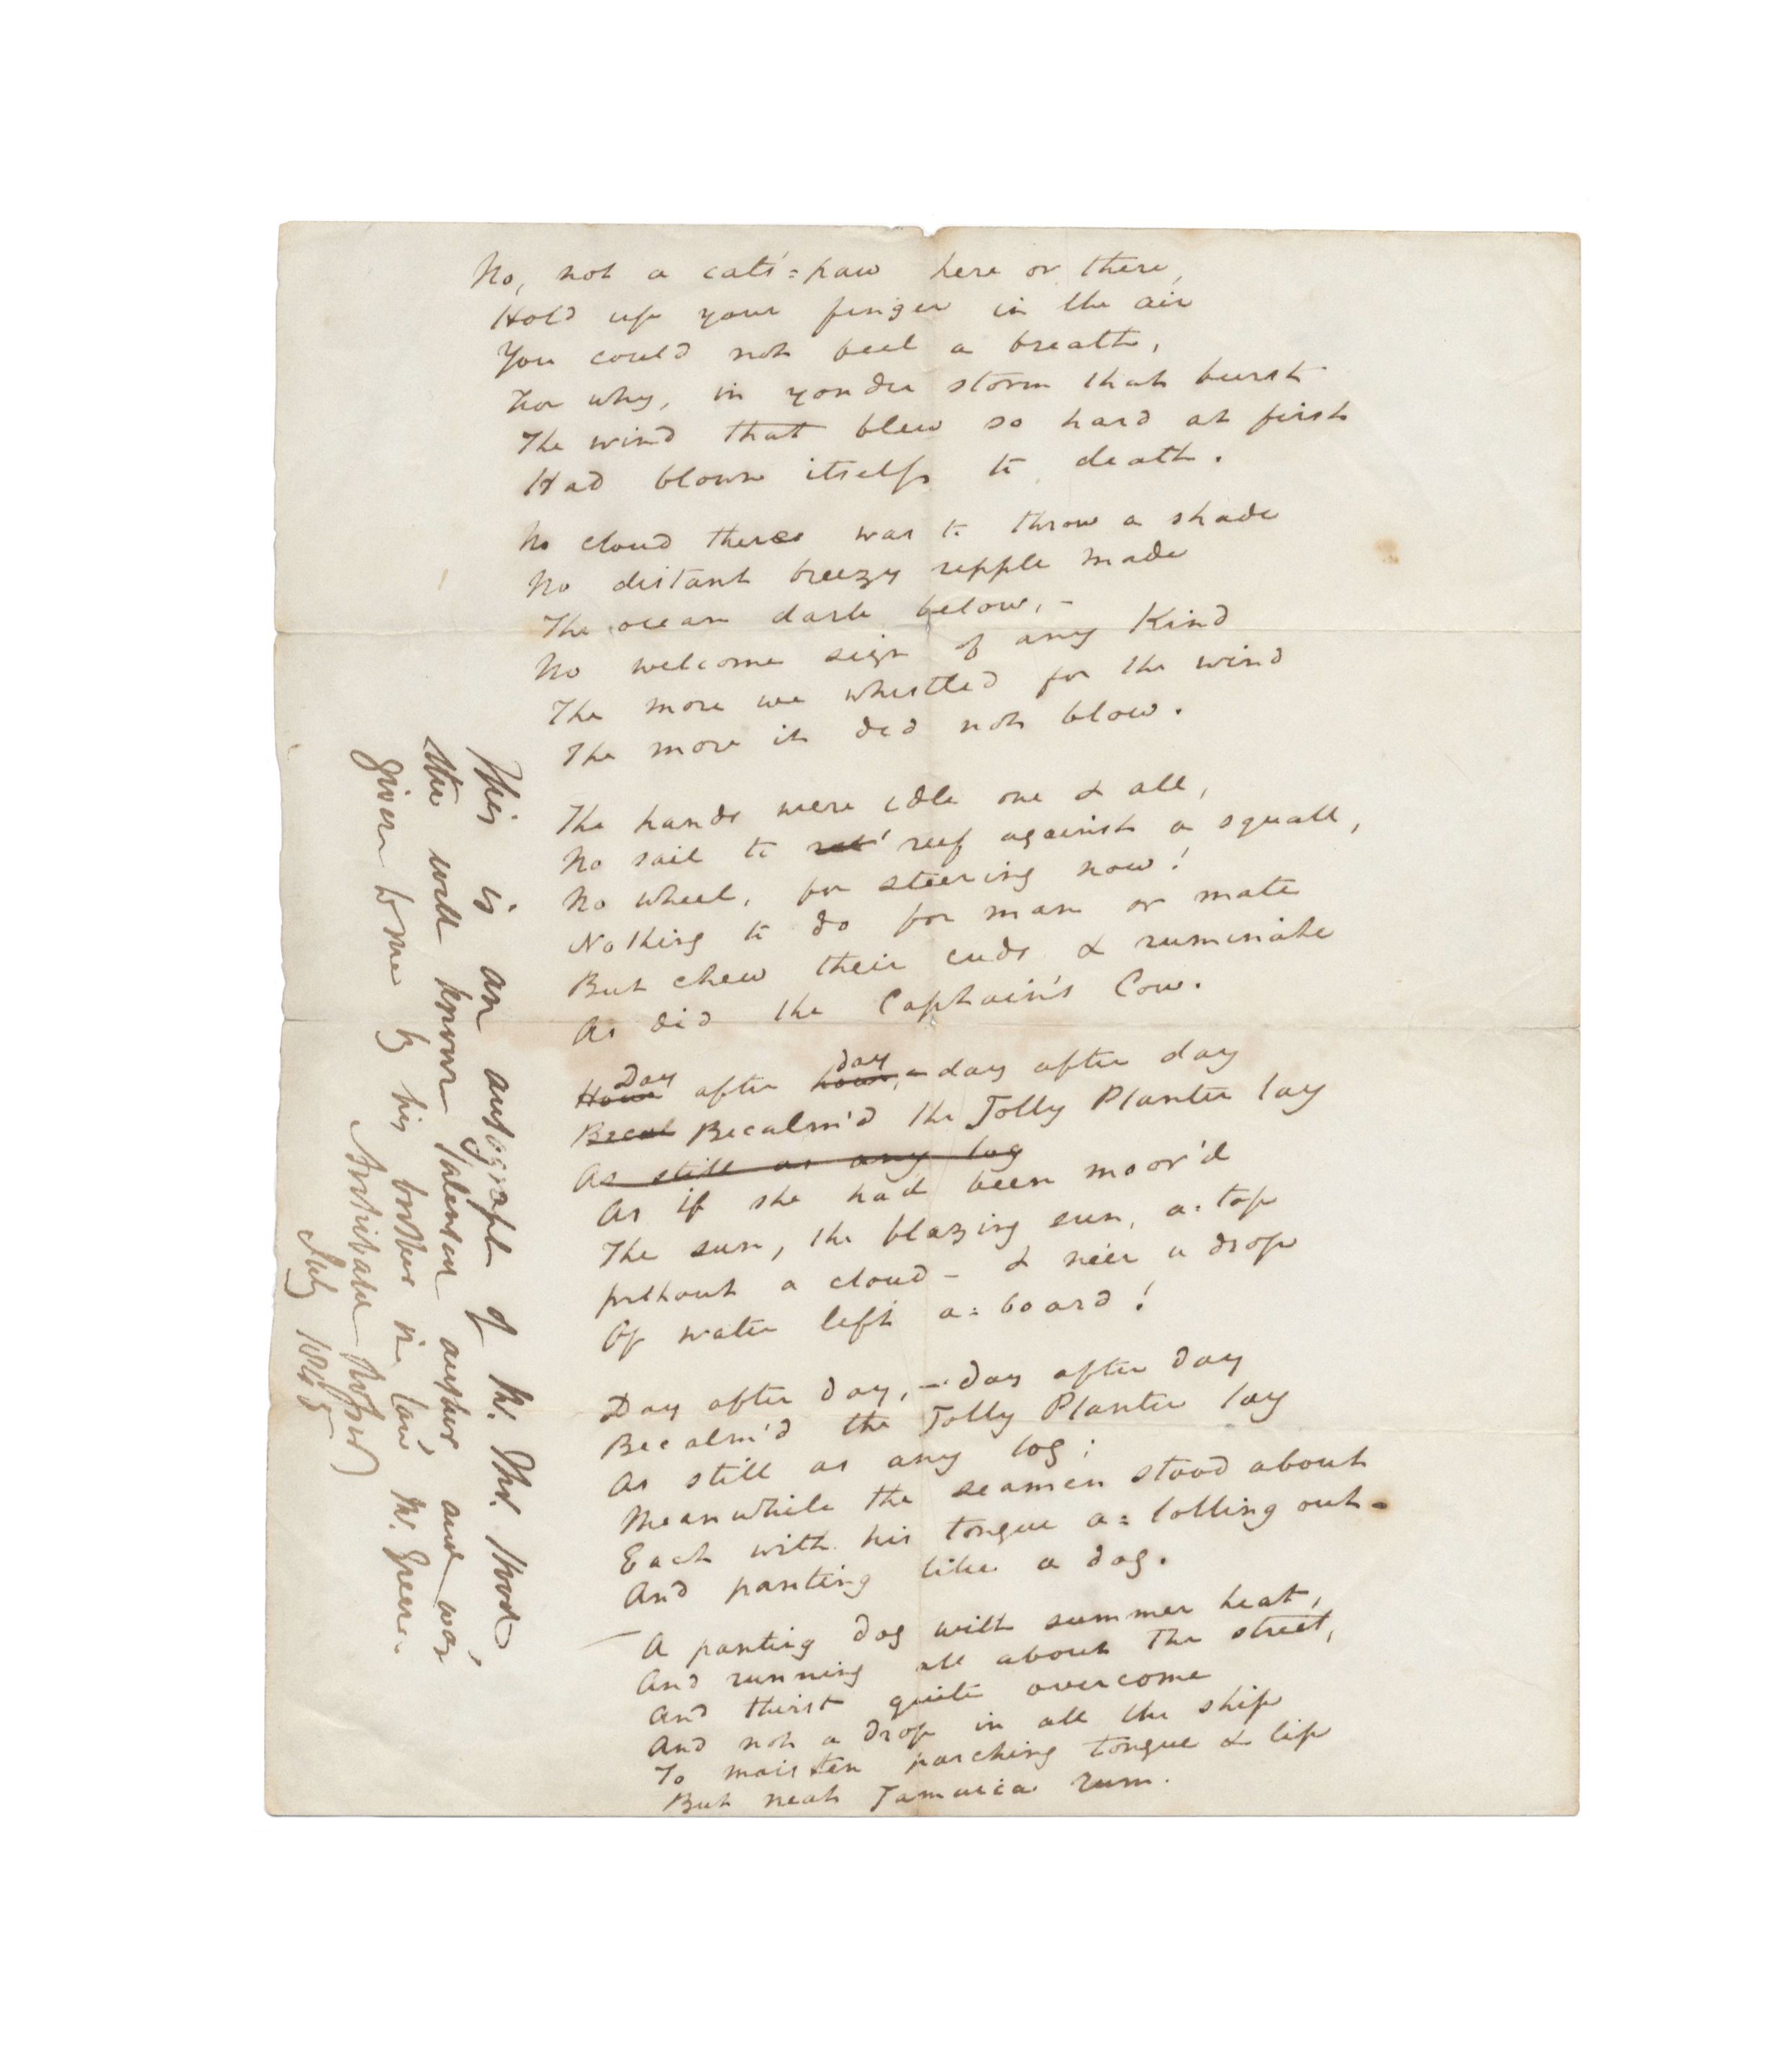 No, not a cat's=paw here or there,
Hold up your finger in the air
You could not feel a breath,
For why, in yonder storm that burst
The wind that blew so hard at first
Had blown itself to death.
No cloud there was to throw a shade
No distant breezy ripple made
The ocean dark below, -
No welcome sign of any Kind
The more we whistled for the wind
The more it did not blow.
The hands were idle one & all,
No sail to reef against a squall,
No wheel, for steering now!
Nothing to do for man or mate
But chew their cuds & ruminate
As did the Captain's Cow.
Hour Day after hour, day - day after day
Becal Becalm'd the Jolly Planter lay
As still as any log
As if she had been moor'd
The sun, the blazing sun, a=top
without a cloud - & ne'er a drop
Of water left a=board!
Day after day, - day after day
Becalm'd the Jolly Planter lay
As still as any log;
Meanwhile the seamen stood about
Each with his tongue a=lolling out -
And panting like a dog.
A panting dog with summer heat,
And running all about the street,
And thirst quite overcome
And not a drop in all the ship
To moisten parching tongue & lip
But neat Jamaica rum.
This is an autograph of Mr. Thos. Hood
the well known Talented author and was
given to me by his brother in law Mr. Greene.
July 1845